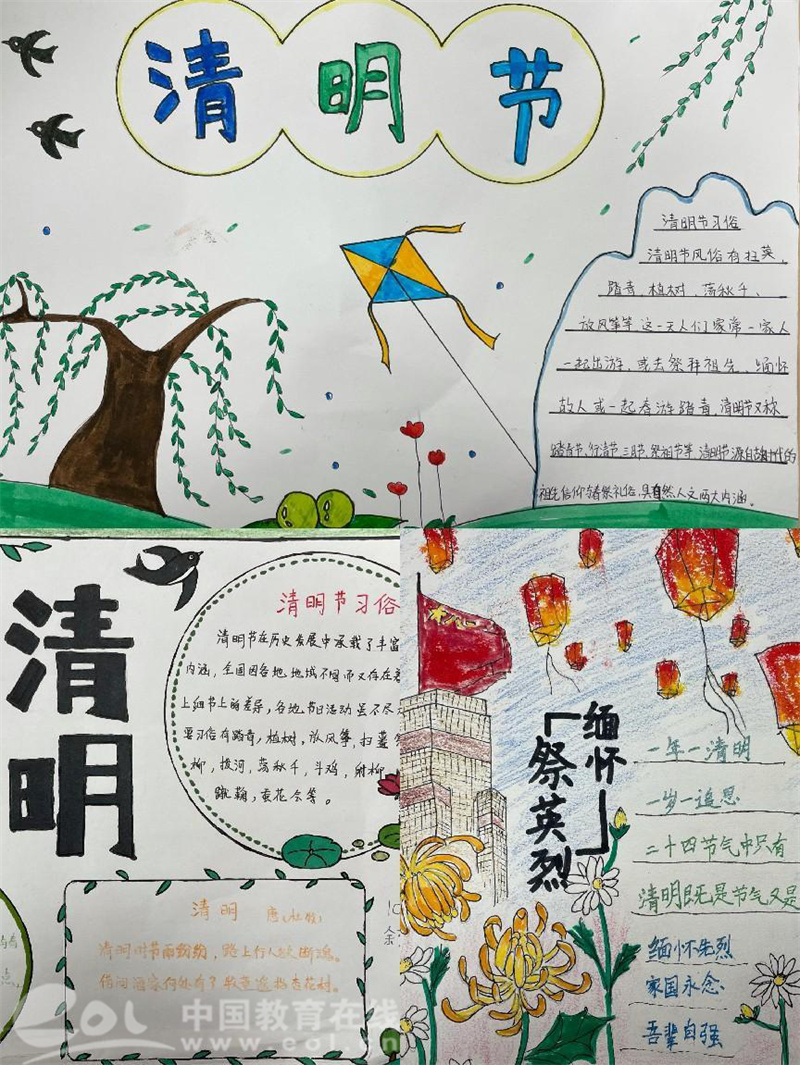 清明节
清明节习俗
清明节风俗有扫英、
踏青、植树、荡秋千、
放风筝等 这一天人们家常一家人
一起出游,或去祭拜祖先、缅怀
故人 或一起春游踏青,清明节又称
踏青节、行清节、三月节、祭祖节等 清明节源自古时代的
祖先信仰与春祭礼俗,具自然人文两大内涵。
清明
清明节习俗
清明节在历史发展中承载了丰富
内涵,全国因各地地域不同而又存在着
上细节上的差异,各地节日活动虽不尽
要习俗有踏青,植树,放风筝,扫墓
柳,拔河,荡秋千,斗鸡,射柳
蹴鞠,蚕花会等。
清明 唐(杜牧)
清明时节雨纷纷,路上行人欲断魂。
借问酒家何处有?牧童遥指杏花村。
缅怀
「祭英烈」
八一
一年一清明
一岁一追思
二十四节气中只有
清明既是节气又是
缅怀先烈
家国永念
吾辈自强
eol 中国教育在线
www.eol.cn